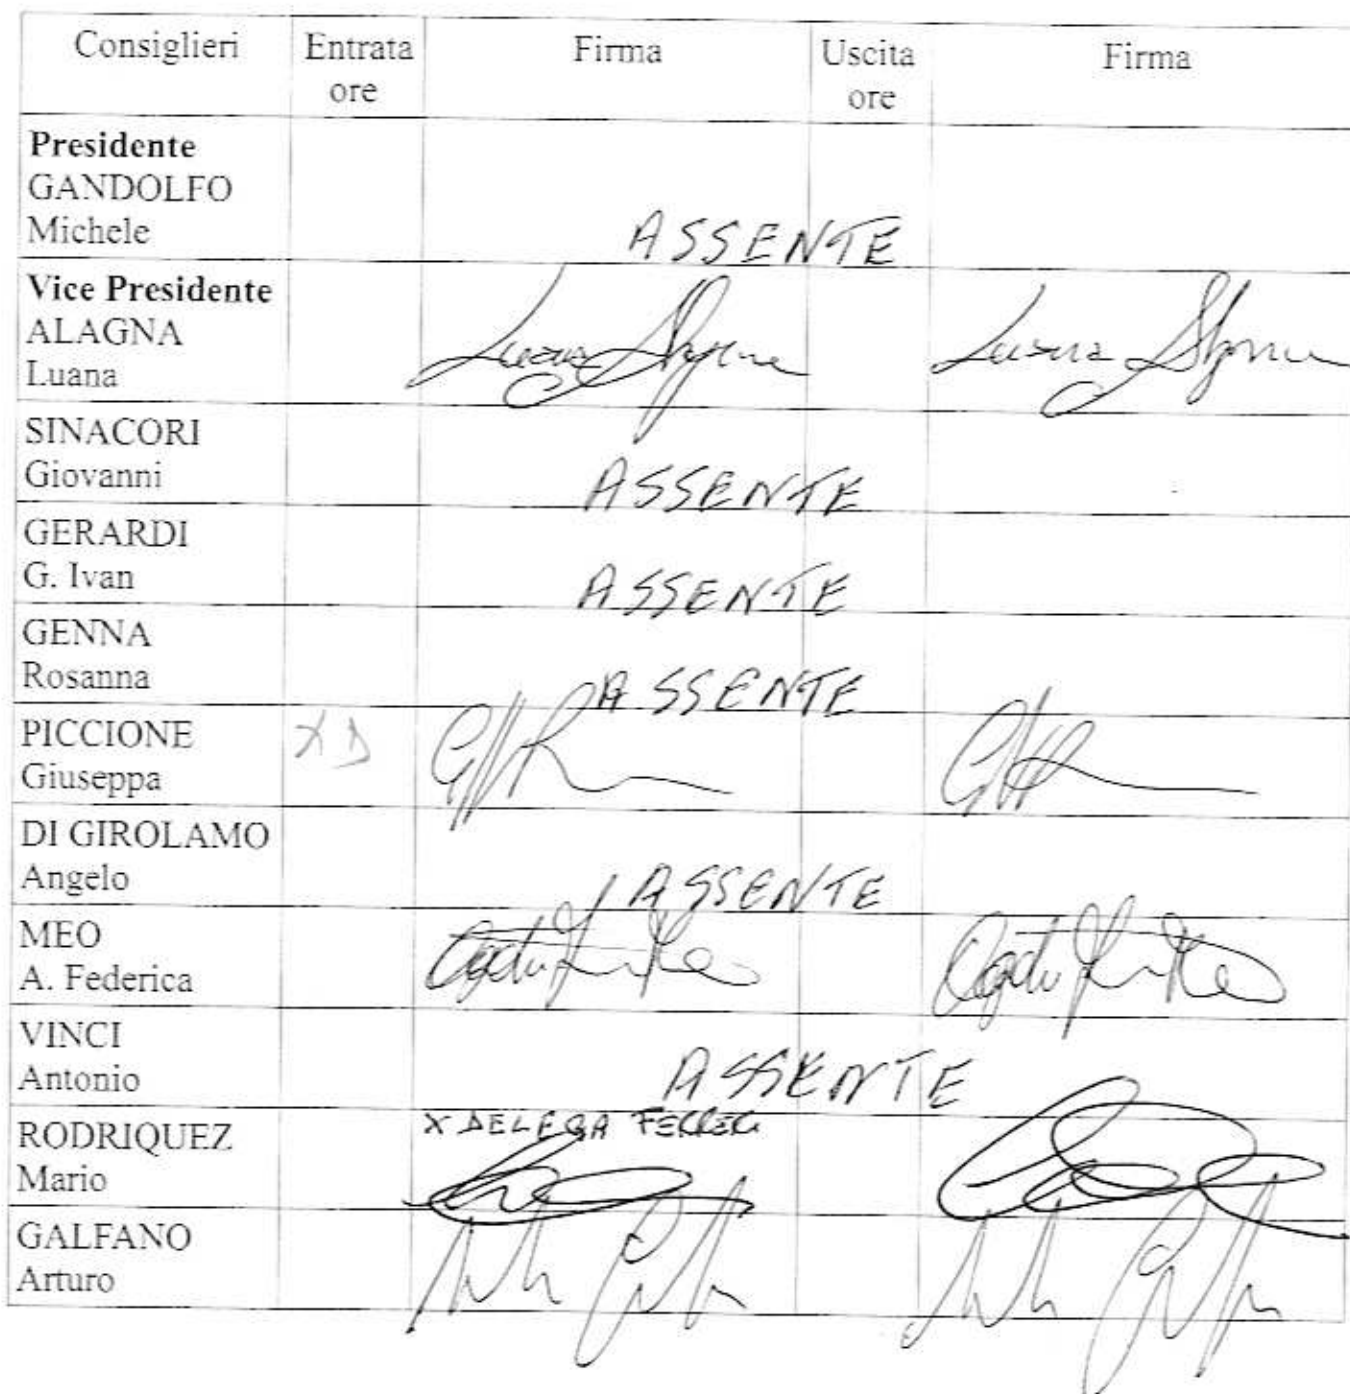 Consiglieri Entrata ore Firma Uscita ore Firma
Presidente
GANDOLFO
Michele ASSENTE
Vice Presidente
ALAGNA
Luana Luana Alagna Luana Alagna
SINACORI
Giovanni ASSENTE
GERARDI
G. Ivan ASSENTE
GENNA
Rosanna ASSENTE
PICCIONE X D
Giuseppa
DI GIROLAMO
Angelo ASSENTE
MEO
A. Federica
VINCI
Antonio ASSENTE
RODRIQUEZ X DELEGA FERRERI
Mario
GALFANO
Arturo